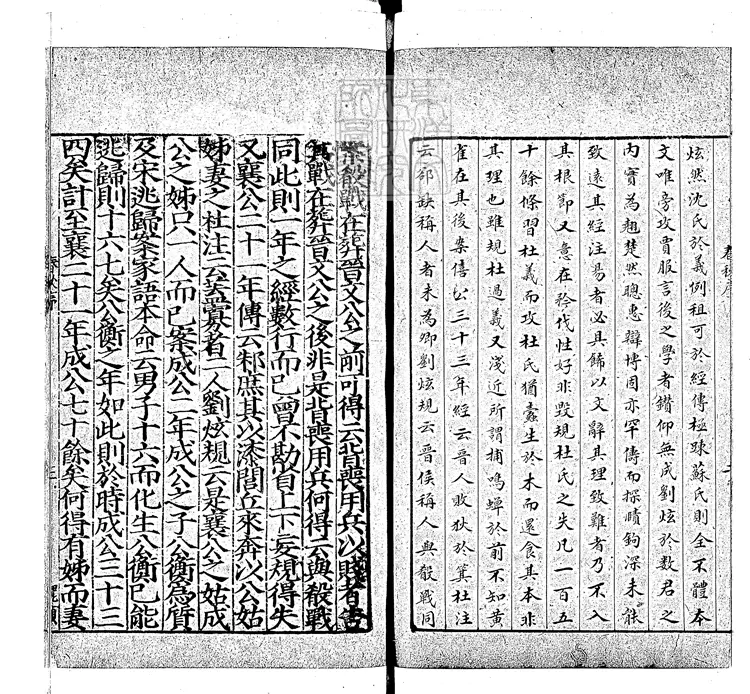 炫然沈氏於義例粗可於經傳極踈蘇氏則全不體本
文唯旁攻賈服言後之學者鑽仰無成劉炫於數君之
内實爲翹楚然聰惠辯博固亦罕儔而探賾鉤深未能
致遠其經注易者必具飾以文辭其理致難者乃不入
其根節又意在矜伐性好非毀規杜氏之失凡一百五
十餘條習杜義而攻杜氏猶蠹生於木而還食其木非
其理也雖規杜過義又淺近所謂捕鳴蟬於前不知黄
雀在其後案僖公三十三年經云晉人敗狄於箕杜注
云郤缺稱人者未爲卿劉炫規云晉侯稱人與殽戰同
案殽戰在葬晉文公之前可得云背喪用兵以賤者告
箕戰在葬晉文公之後非是背喪用兵何得云與殽戰
同此則一年之經數行而已曾不勘省上下妄規得失
又襄公二十一年傳云邾庶其以漆閭丘來奔以公姑
姊妻之杜注云蓋寡者二人劉炫規云是襄公之姑成
公之姊只一人而已案成公二年成公之子公衡爲質
及宋逃歸案家語本命云男子十六而化生公衡已能
逃歸則十六七矣公衡之年如此則於時成公三十三
四矣計至襄二十一年成公七十餘矣何得有姊而妻